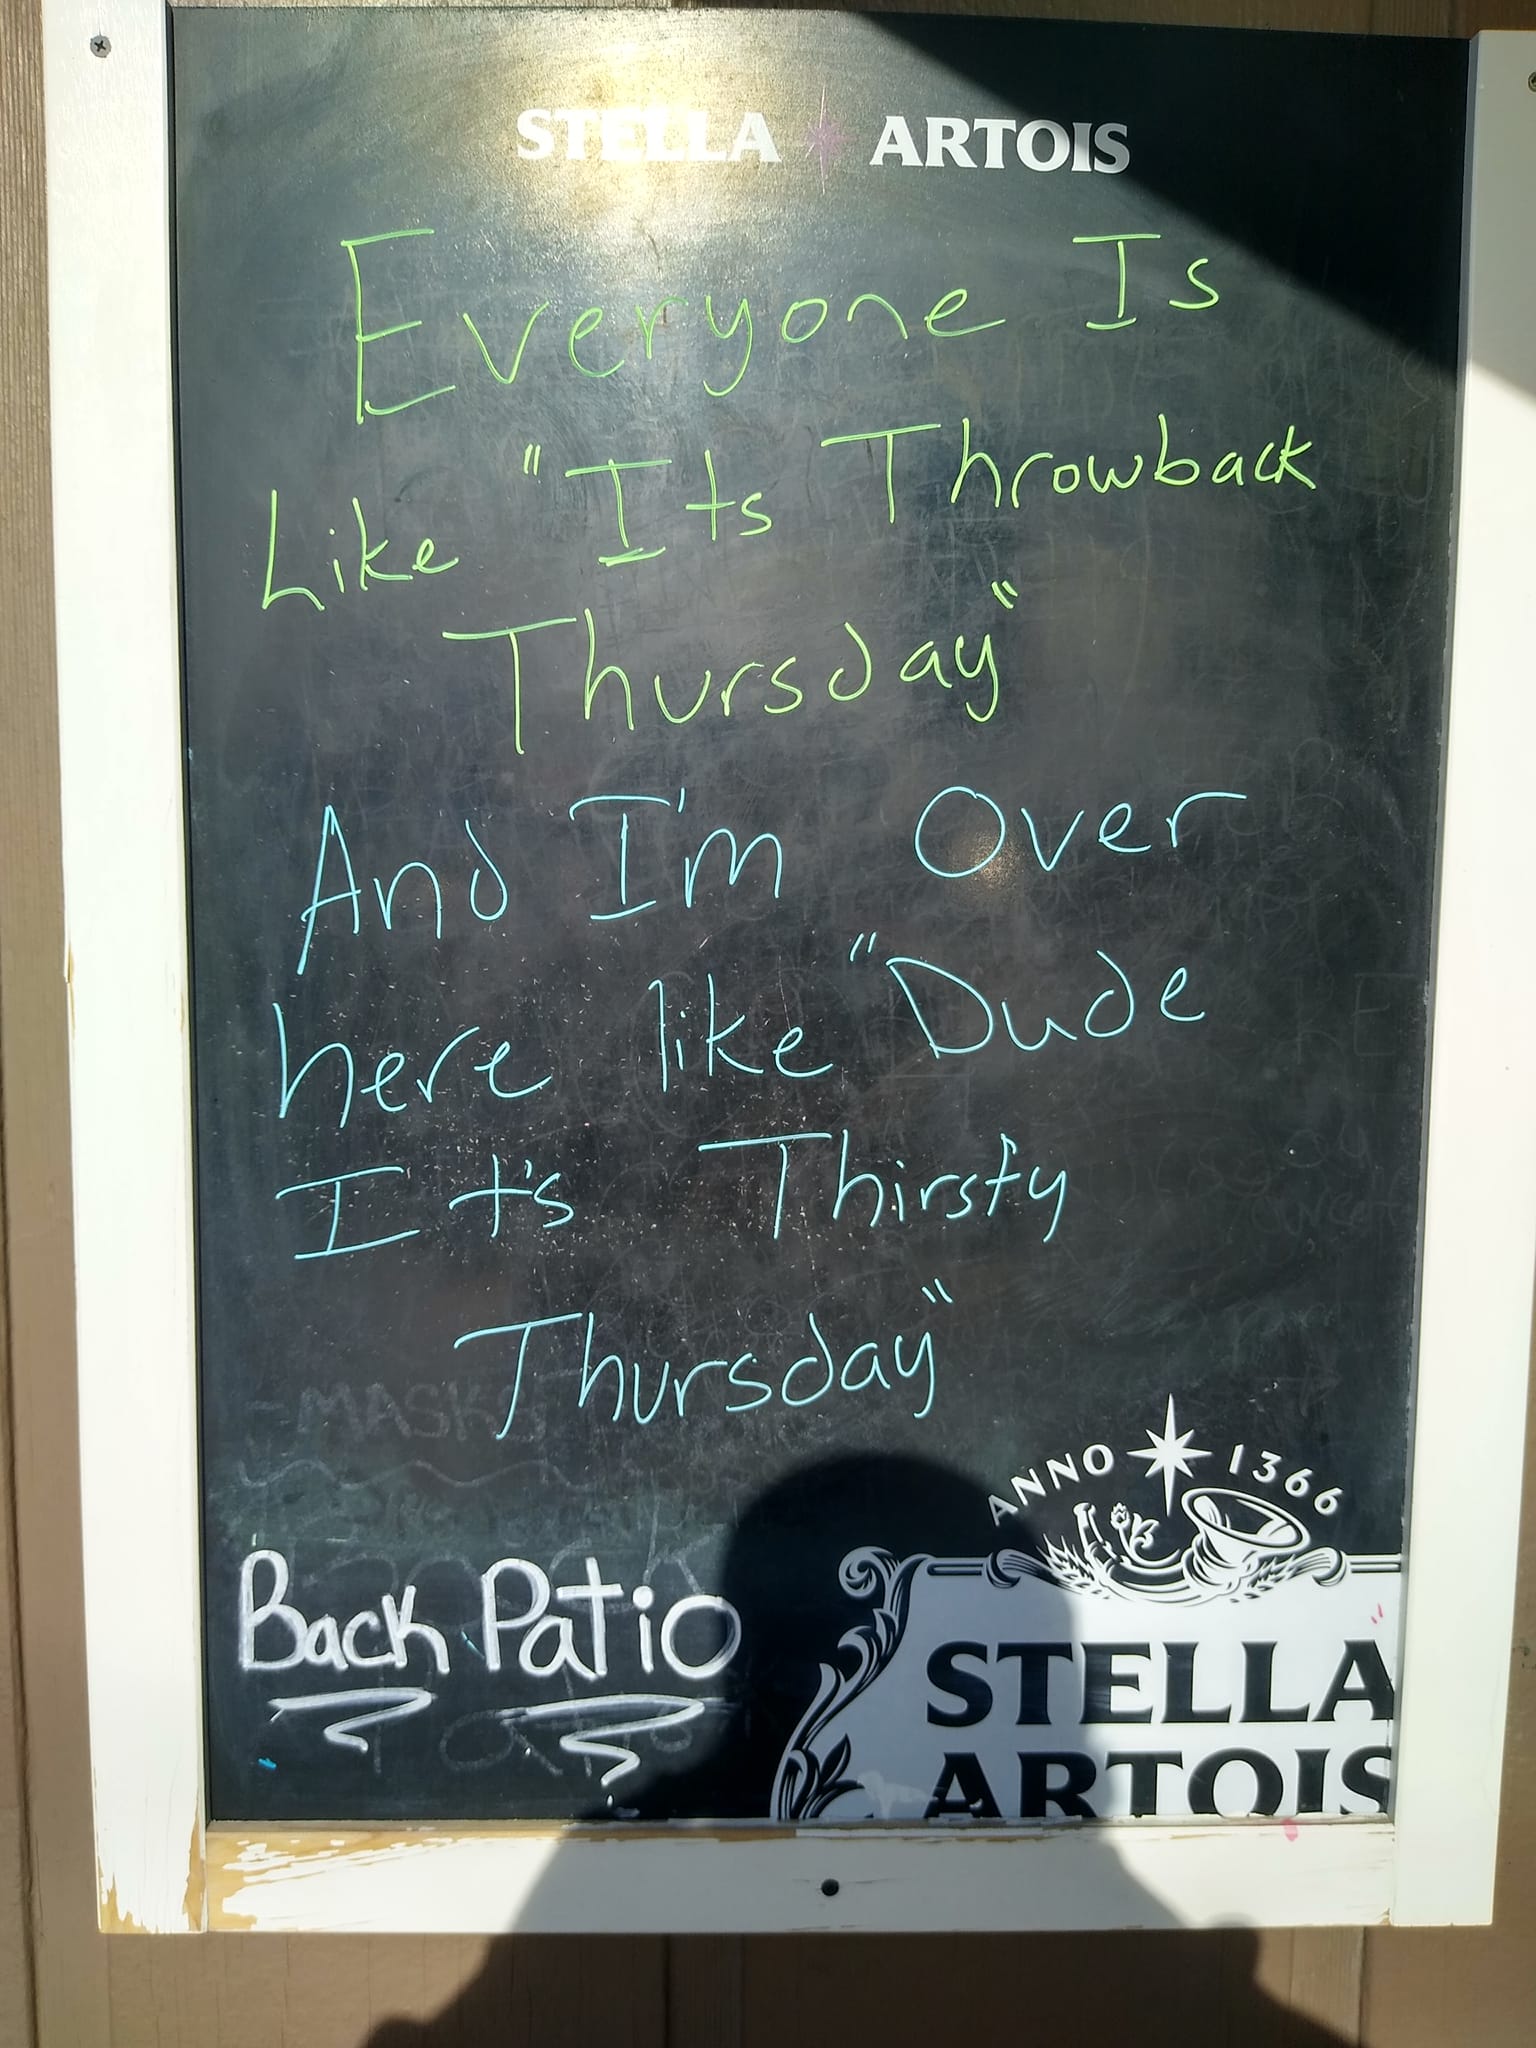 STELLA ARTOIS
Everyone Is
Like "Its Throwback
Thursday"
And I'm Over
here like "Dude
It's Thirsty
Thursday"
- MASKS
ANNO 1366
Back Patio
STELLA
ARTOIS